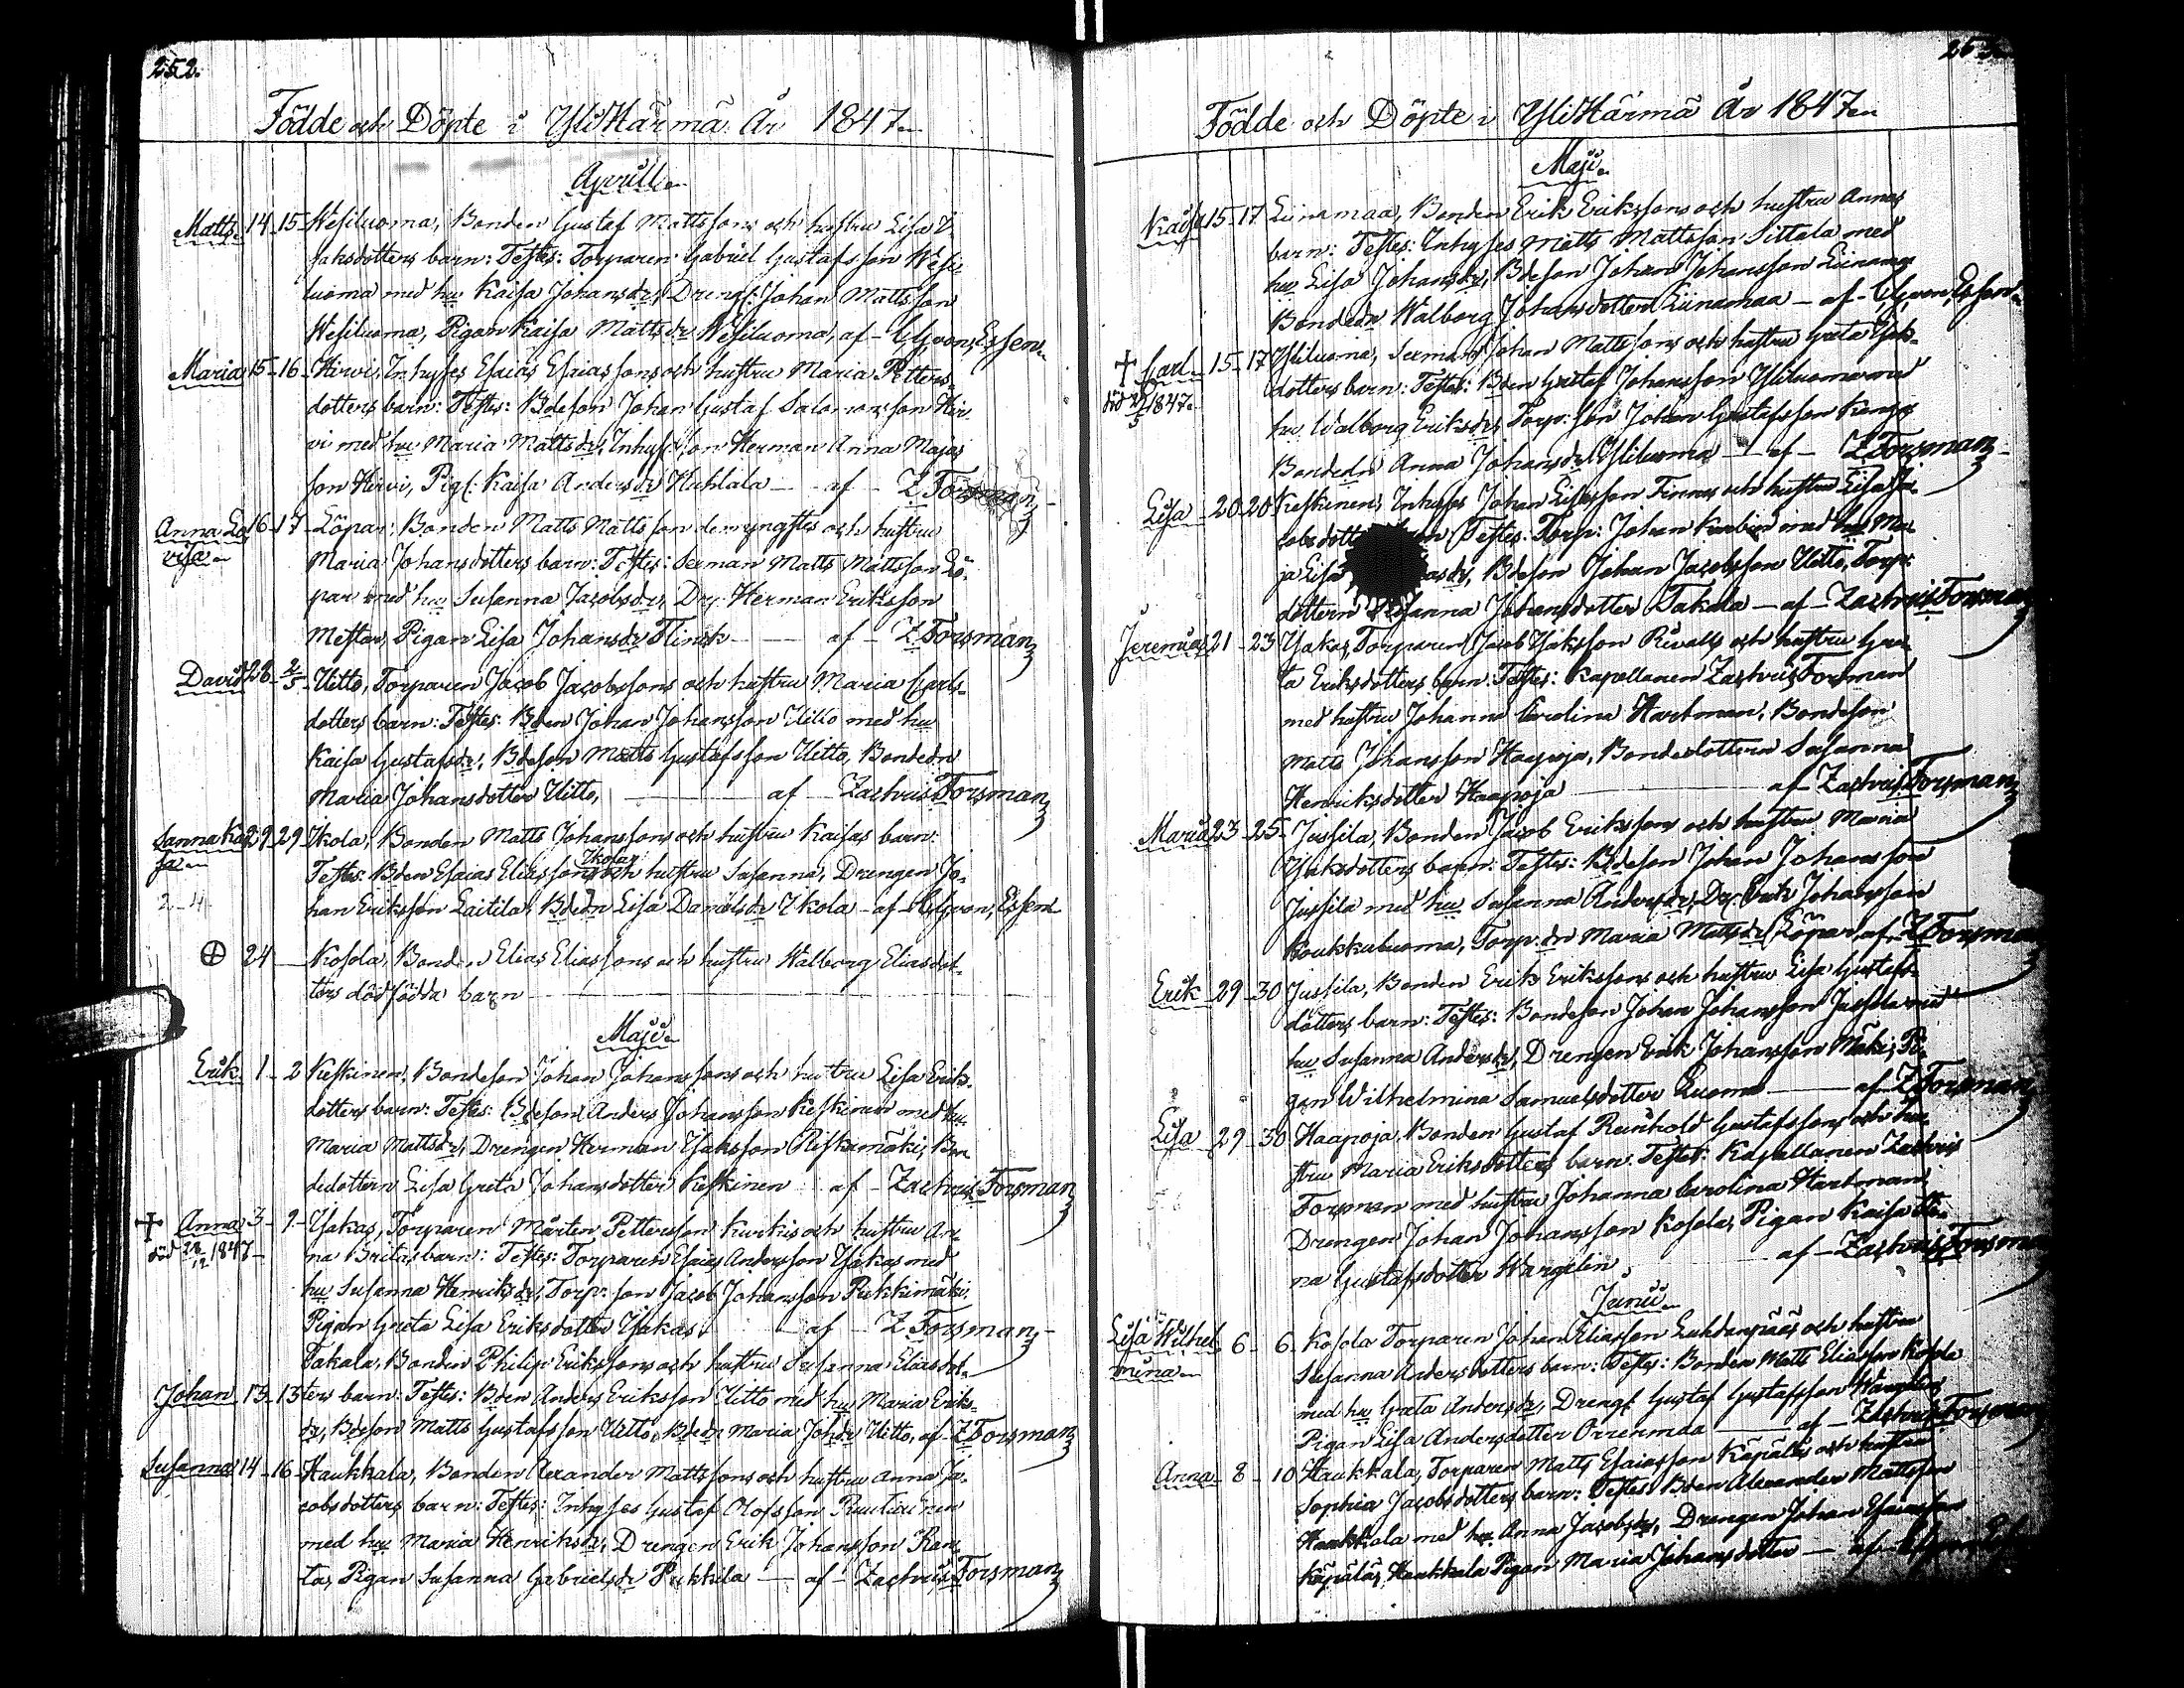 252.
Födde och Döpte i YliHärmä År 1847
Aprill
Matts 14 15 Wesiluoma, Bonden Gustaf Mattssons och hustru Lisa I
saksdotters barn: Testes: Torparen Gabriel Gustafsson Wesi
luoma med hu Kaisa Johansdr, Drengs: Johan Mattsson
Wesiluoma, Pigan Kaisa Mattsdr Wesiluoma, af von Essen
Maria 15 16 Hirvi, Inhyses Esaias Esaiassons och hustru Maria Petters-
dotters barn: Testes: Bdeson Johan Gustaf Salomonsson Hir
vi med hu Maria Mattsdr, Inhys: son Herman Anna Majas
son Hirvi, Pig: Kaisa Andersdr Huhtala af Z Forsman
Anna Lo 16 17 Löpar, Bonden Matts Mattsson den yngstes och hustru
visa Maria Johansdotters barn: Testes: Seeman Matts Mattsson Lö-
par med hu Susanna Jacobsdr, Dr: Herman Eriksson
Mestar, Pigan Lisa Johansdr Flinck af Z Forsman
David 28 2/5 Uitto, Torparen Jacob Jacobssons och hustru Maria Carls-
dotters barn: Testes: Bden Johan Johansson Uitto med hu
Kaisa Gustafsdr, Bdeson Matts Gustafsson Uitto, Bondedn
Maria Johansdotter Uitto, af Zachris Forsman
Sanna Kai 29 29 Ikola, Bonden Matts Johanssons och hustru Kaisas barn:
sa Testes: Bden Esaias Eliasson Ikola och hustru Susanna, Drengen Jo-
han Eriksson Laitila, Bdedn Lisa Danielsdr Ikola af von Essen
24 Kosola, Bonden Elias Eliassons och hustru Walborg Eliasdot-
ters dödfödda barn
Maji
Erik 1 2 Keskinen, Bondeson Johan Johanssons och hustru Lisa Eriks-
dotters barn: Testes: Bdeson Anders Johansson Keskinen med hu
Maria Mattsdr, Drengen Herman Isaksson Riskamäki, Bon
dedottern Lisa Greta Johansdotter Keskinen af Zachris Forsman
Anna 3 9 Isakas, Torparen Mårten Pettersson Kurkis och hustru An-
död 22/12 1847 na Britas barn: Testes: Torparen Esaias Andersson Isakas med
hu Susanna Henriksdr, Torp: son Jacob Johansson Pukkimäki
Pigan Greta Lisa Eriksdotter Isakas af Z Forsman
Takala, Bonden Philip Erikssons och hustru Susanna Eliasdot-
Johan 13 13 ters barn: Testes: Bden Anders Eriksson Uitto med hu Maria Eriks-
dr, Bdeson Matts Gustafsson Uitto, Bdedn Maria Johdr Uitto, af Z Forsman
Susanna 14 16 Haukkala, Bonden Alexander Mattssons och hustru Anna Ja-
cobsdotters barn: Testes: Inhyses Gustaf Olofsson Ruutiainen
med hu Maria Henriksdr, Drengen Erik Johansson Ran
ta, Pigan Susanna Gabrielsdr Pukkila af Zachris Forsman
Födde och Döpte i YliHärmä År 1847
Maji
Kaisa 15 17 Liinamaa, Bonden Erik Erikssons och hustru Annas
barn: Testes: Inhyses Matts Mattsson Sittala med
hu Lisa Johansdr, Bdeson Johan Johansson Liinamaa
Bondedn Walborg Johansdotter Liinamaa af von Essen
Carl 15 17 Yliluoma, Seeman Johan Mattssons och hustru Greta
död /5 1847 dotters barn: Testes: Bden Gustaf Johansson Yliluoma med
hu Walborg Eriksdr, Torp: son Johan Gustafsson
Bondedn Anna Johansdr Yliluoma af Z Forsman
Lisa 20 20 Keskinen, Inhyses Johan Finnes och hustru Lisa Ja-
cobsdotters Testes: Torp: Johan med hu Ma-
ja Lisa Bdeson Johan Jacobsson Uitto, Torp:
dottern Susanna Johansdotter Takala af Zachris Forsman
Jeremias 21 23 Isakas, Torparen Jacob Isaksson Rivalls och hustru Gre-
ta Eriksdotters barn: Testes: Kapellanen Zachris Forsman
med hustru Johanna Carolina Hartman, Bondeson
Matts Johansson Haapoja, Bondedottern Susanna
Henriksdotter Haapoja af Zachris Forsman
Maria 23 25 Jussila, Bonden Jacob Erikssons och hustru Maria
Isaksdotters barn: Testes: Bdeson Johan Johansson
Jussila med hu Susanna Andersdr, Dr: Erik Johansson
Koukkuluoma, Torp: dr Maria Mattsdr Löpar af Z Forsman
Erik 29 30 Jussila, Bonden Erik Erikssons och hustru Lisa Gustafs-
dotters barn: Testes: Bondeson Johan Johansson Jussila med
hu Susanna Andersdr, Drengen Erik Johansson Mäki, Pi-
gan Wilhelmina Samuelsdotter Luoma af Z Forsman
Lisa 29 30 Haapoja, Bonden Gustaf Reinhold Gustafssons och hu-
stru Maria Eriksdotters barn: Testes: Kapellanen Zachris
Forsman med hustru Johanna Carolina Hartman,
Drengen Johan Johansson Kosola, Pigan Kaisa Ste-
na Gustafsdotter Wargelin, af Zachris Forsman
Junii
Lisa Wilhel 6 6 Kosola Torparen Johan Eliasson Luhdanpääs och hustru
mina Susanna Andersdotters barn: Testes: Bonden Matts Eliasson Kosola
med hu Greta Andersdr, Drengs: Gustaf Gustafsson Wargelin
Pigan Lisa Andersdotter Orrenmaa af Zachris Forsman
Anna 8 10 Haukkala, Torparen Matts Esaiasson Käpäläs och hustru
Sophia Jacobsdotters barn: Testes: Bden Alexander Mattsson
Haukkala med hu Anna Jacobsdr, Drengen Johan Esaiasson
Käpälä, Haukkala Pigan Maria Johansdotter af